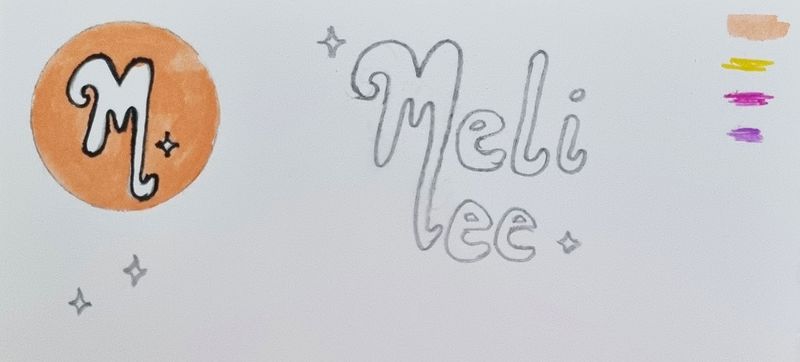 M
Meli
lee